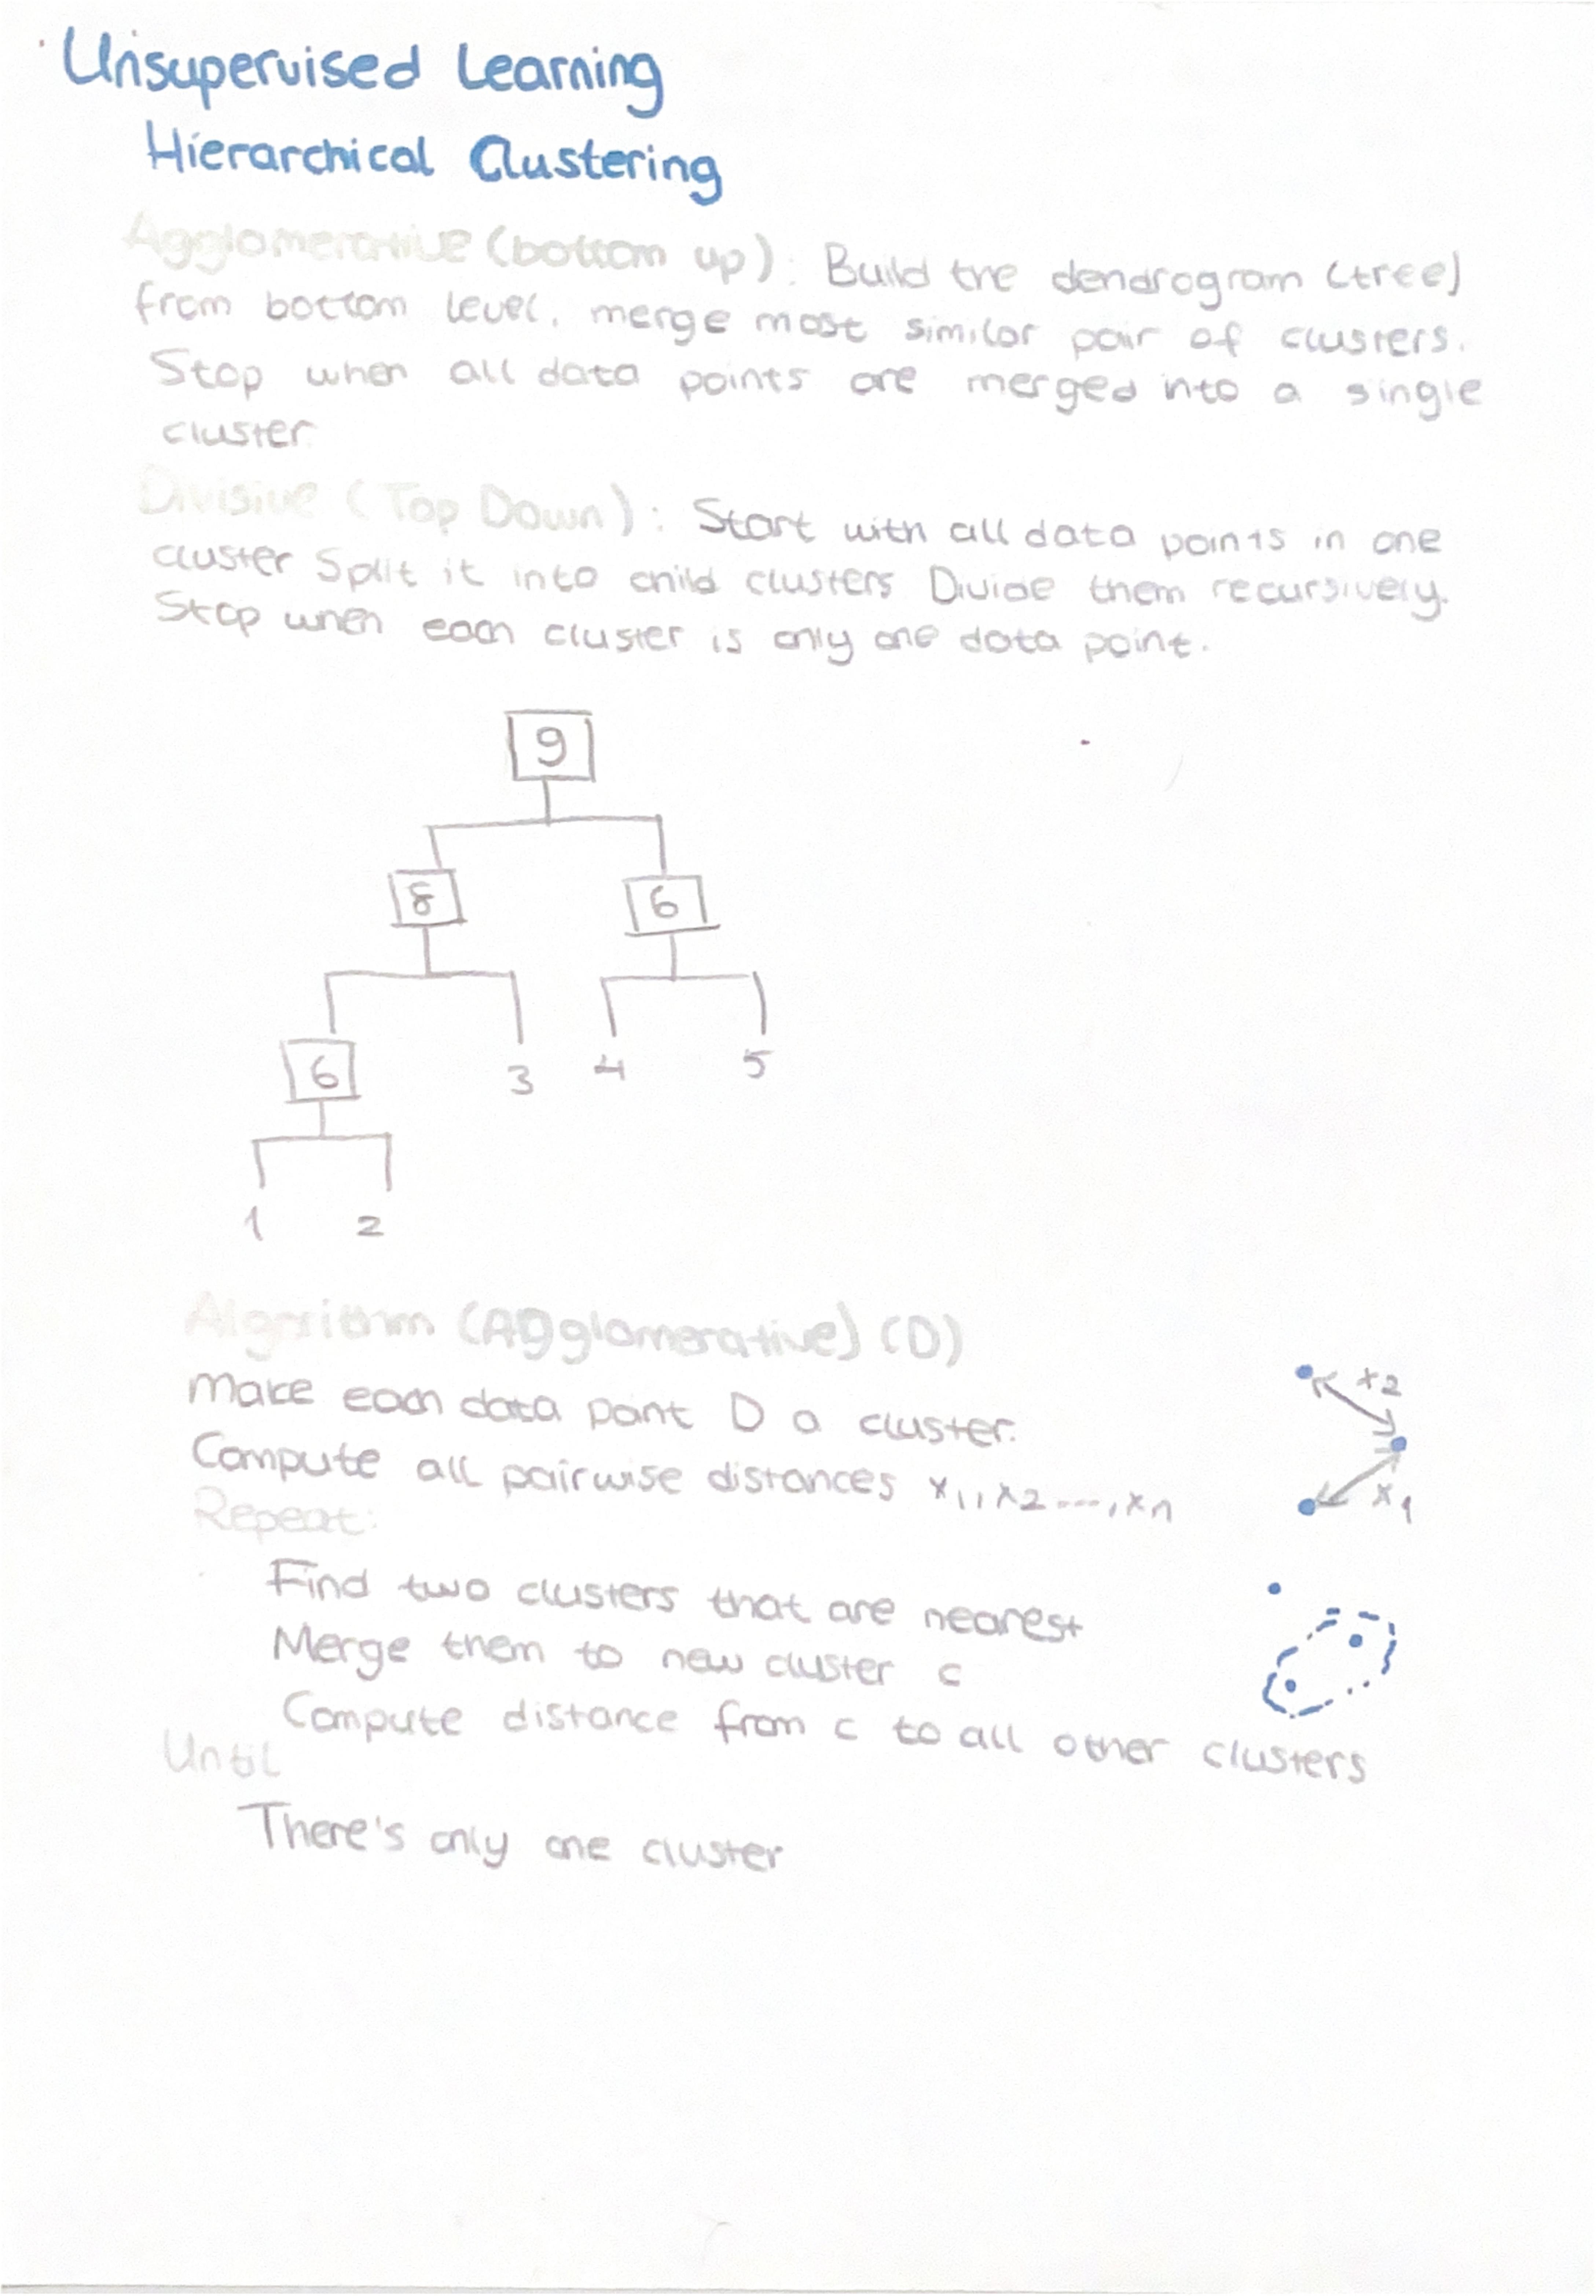 Unsupervised Learning
Hierarchical Clustering
Agglomerative (bottom up): Build the dendrogram (tree)
from bottom level, merge most similar pair of clusters.
Stop when all data points are merged into a single
cluster.
Divisive (Top Down): Start with all data points in one
cluster Split it into child clusters Divide them recursively.
Stop when each cluster is only one data point.
9
8 6
6 3 4 5
1 2
Algorithm (Agglomerative) (D)
Make each data point D a cluster.
Compute all pairwise distances x1, x2 ..., xn
x2
x1
Repeat:
Find two clusters that are nearest
Merge them to new cluster c
Compute distance from c to all other clusters
Until
There's only one cluster